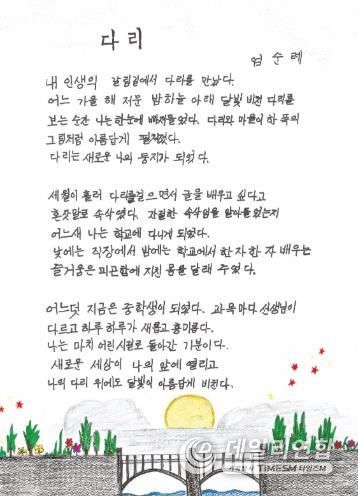 다리
엄순례
내 인생의 갈림길에서 다리를 만났다.
어느 가을 해 저문 밤하늘 아래 달빛 비친 다리를
보는 순간 나는 한눈에 빠져들었다. 다리와 마을이 한 폭의
그림처럼 아름답게 펼쳐졌다.
다리는 새로운 나의 둥지가 되었다.
세월이 흘러 다리를 걸으면서 글을 배우고 싶다고
혼잣말로 속삭였다. 간절한 속삭임을 알아들었는지
어느새 나는 학교에 다니게 되었다.
낮에는 직장에서 밤에는 학교에서 한 자 한 자 배우는
즐거움은 피곤함에 지친 몸을 달래 주었다.
어느덧 지금은 중학생이 되었다. 과목마다 선생님이
다르고 하루 하루가 새롭고 흥미롭다.
나는 마치 어린 시절로 돌아간 기분이다.
새로운 세상이 나의 앞에 열리고
나의 다리 위에도 달빛이 아름답게 비친다.
데일리연합
TIMESM 타임즈M